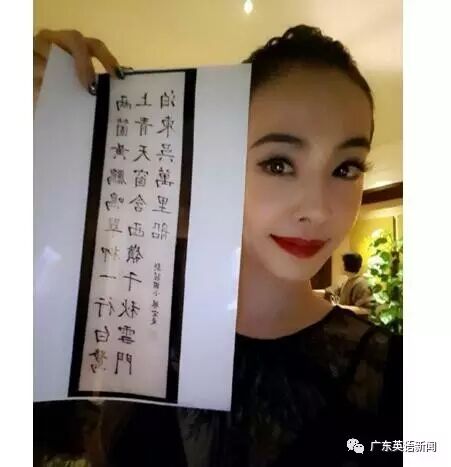 兩箇黃鸝鳴翠柳一行白鷺
上青天窗含西嶺千秋雪門
泊東吳萬里船
广东英语新闻